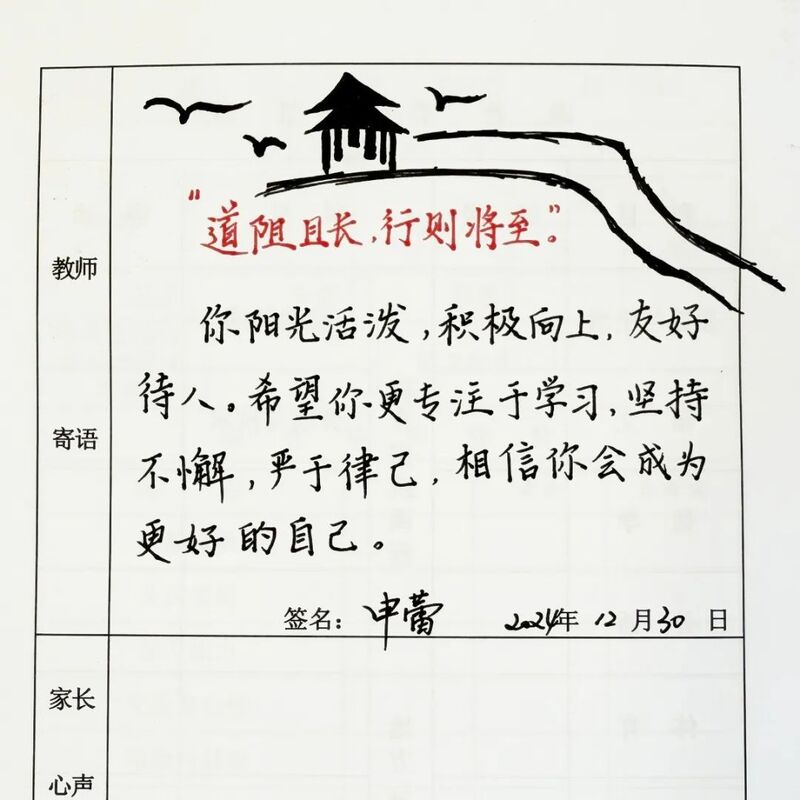 “道阻且长，行则将至”。
教师
寄语
你阳光活泼，积极向上，友好
待人。希望你更专注于学习，坚持
不懈，严于律己，相信你会成为
更好的自己。
签名：申蕾 2024年12月30日
家长
心声